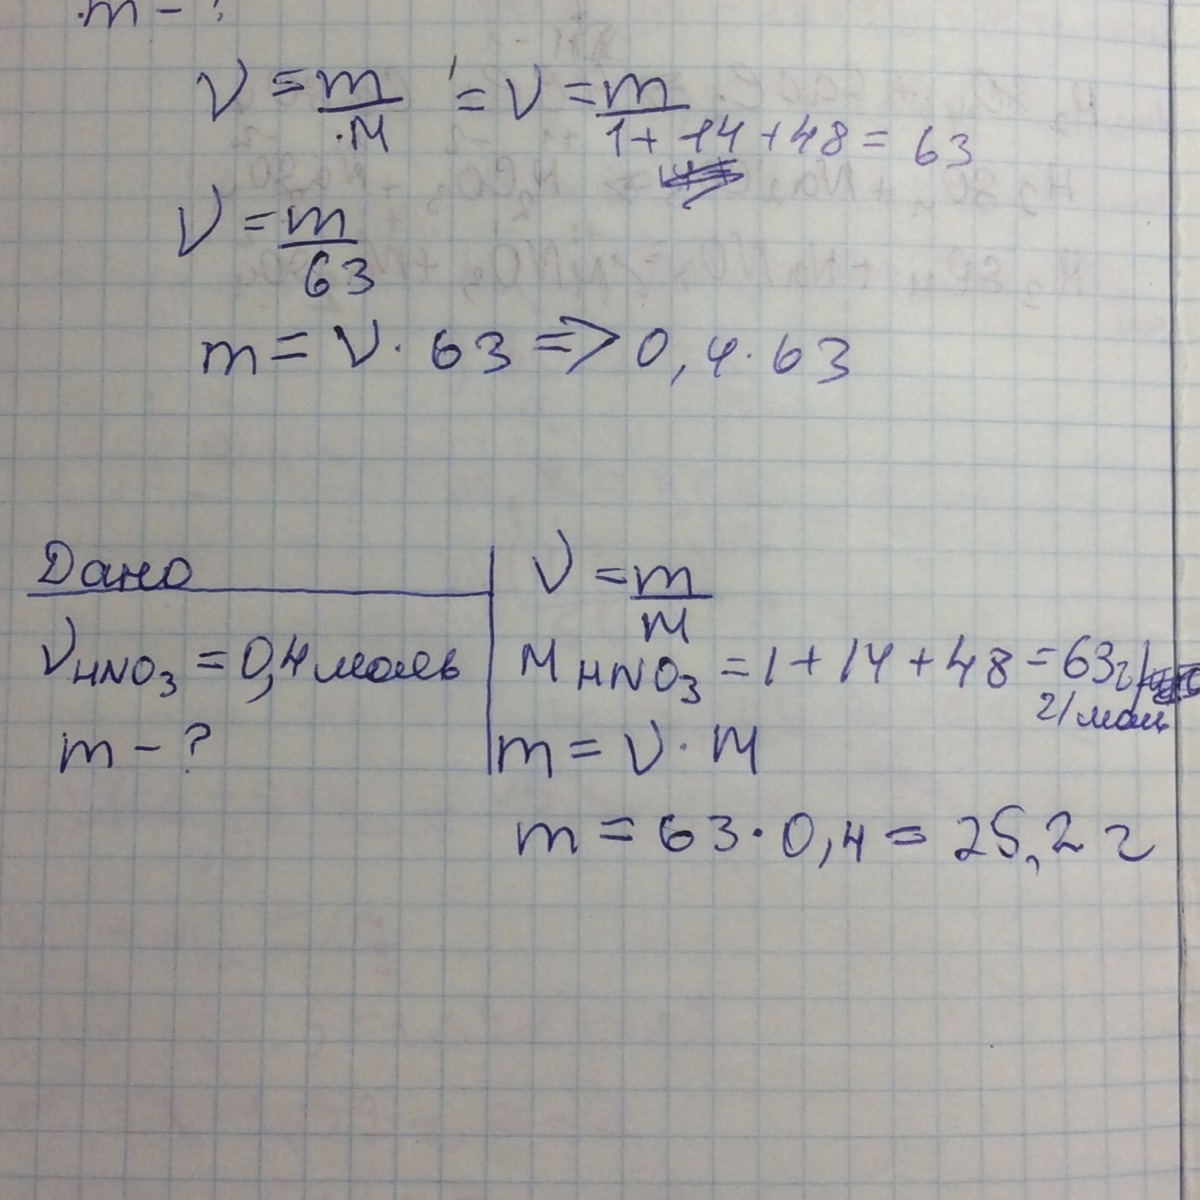 m - ?
ν = m/M = ν = m/1 + 14 + 48 = 63
ν = m/63
m = ν · 63 => 0,4 · 63
Дано
ν HNO3 = 0,4 моль
m - ?
ν = m/M
M HNO3 = 1 + 14 + 48 = 63 г/
г/моль
m = ν · M
m = 63 · 0,4 = 25,2 г